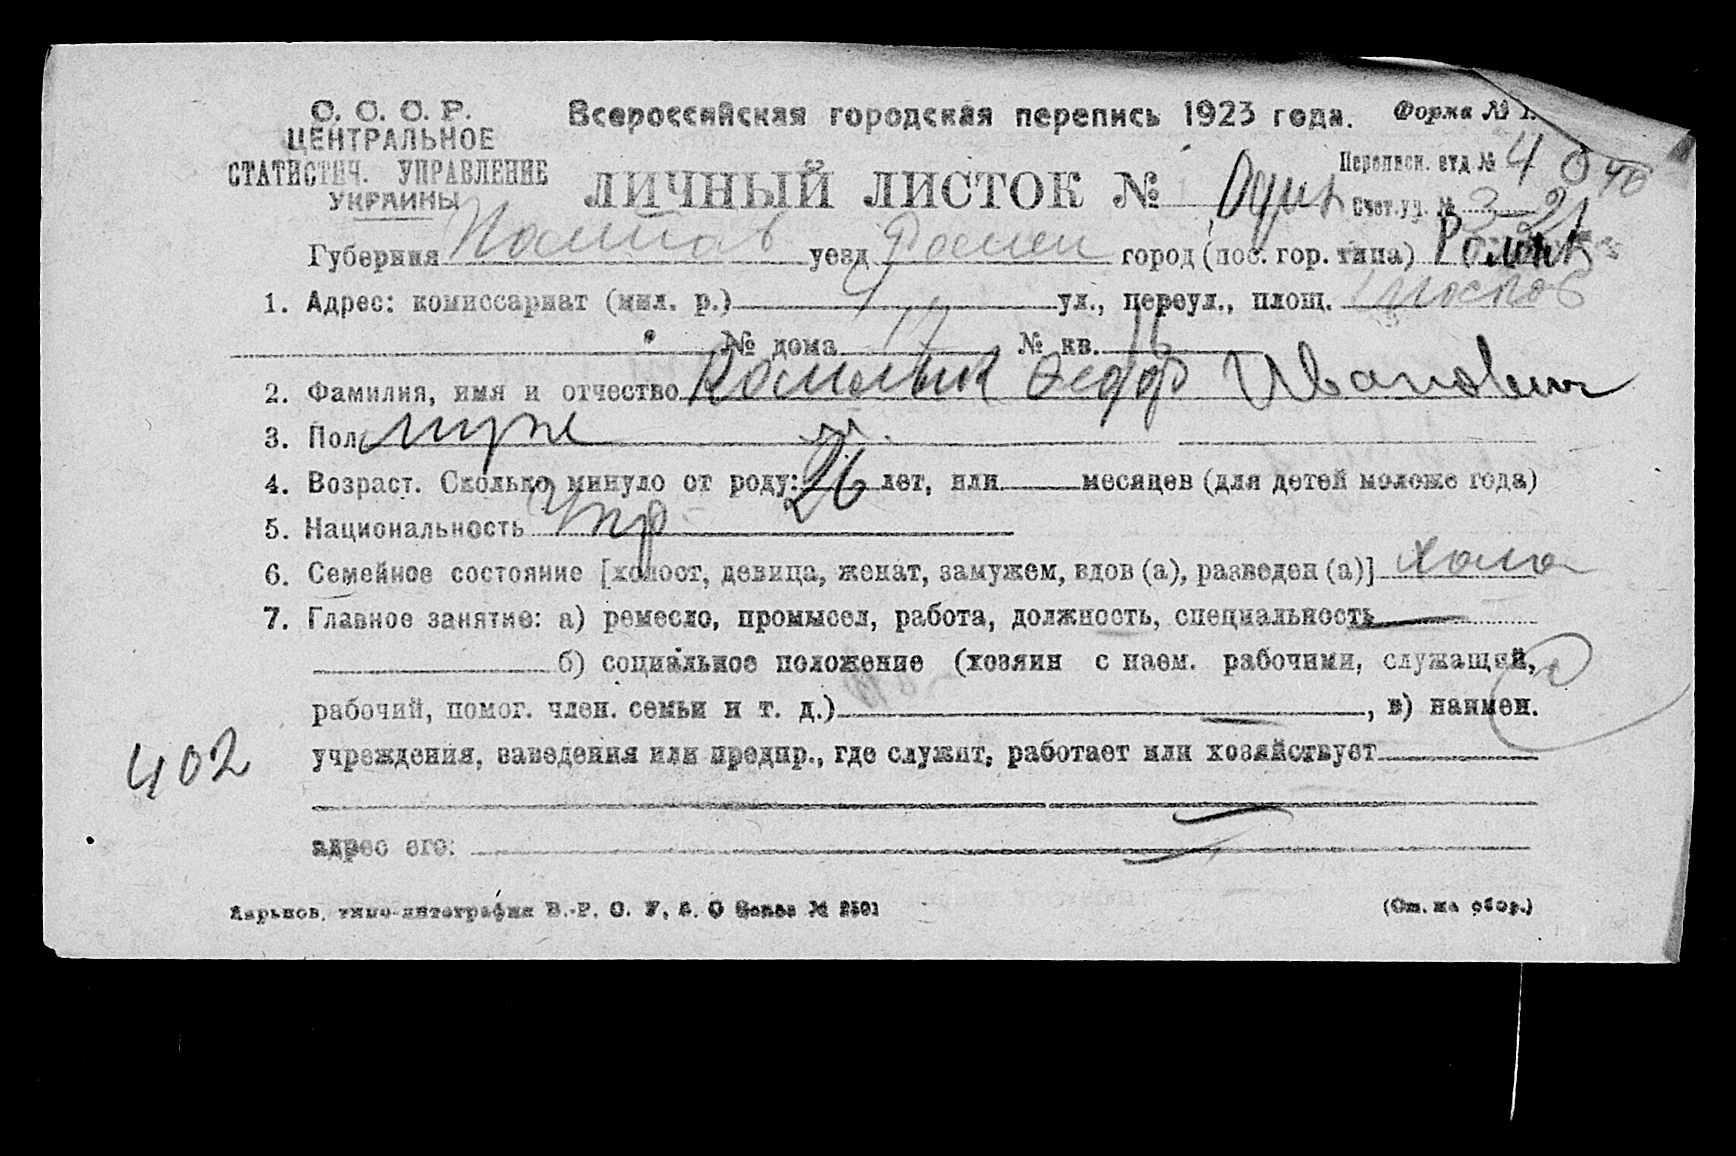 С. С. С. Р.
ЦЕНТРАЛЬНОЕ
СТАТИСТИЧ. УПРАВЛЕНИЕ
УКРАИНЫ
Всероссийская городская перепись 1923 года.
Форма № 1.
ЛИЧНЫЙ ЛИСТОК №
Переписн. отд №
Счет. уч. №
Губерния Полтав уезд Ромен город (пос. гор. типа)
1. Адрес: комиссариат (мил. р.) ул., переул., площ.
№ дома 17 № кв. 16
2. Фамилия, имя и отчество Федор Иванович
3. Пол муж м.
4. Возраст. Сколько минуло от роду: 26 лет, или месяцев (для детей моложе года)
5. Национальность Укр
6. Семейное состояние [холост, девица, женат, замужем, вдов (а), разведен (а)] холо
7. Главное занятие: а) ремесло, промысел, работа, должность, специальность —
б) социальное положение (хозяин с наем. рабочими, служащий,
рабочий, помог. член. семьи и т. д.) — , в) наимен.
402
учреждения, заведения или предпр., где служит, работает или хозяйствует
адрес его:
(См. на обор.)